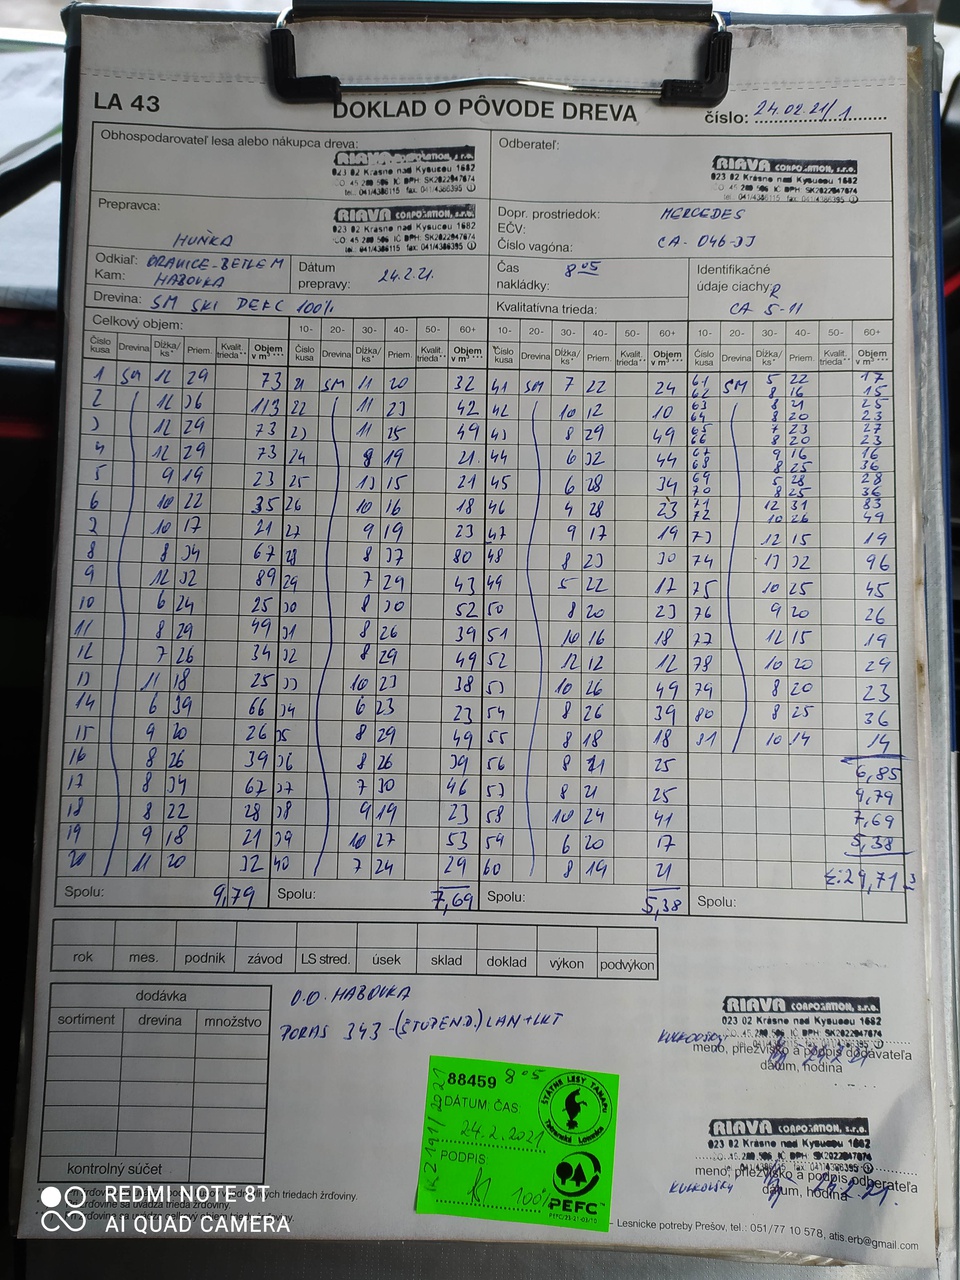 LA 43
DOKLAD O PÔVODE DREVA
číslo: 24.02.21/1
Obhospodarovateľ lesa alebo nákupca dreva:
RIAVA CORPORATION, s.r.o.
023 02 Krásno nad Kysucou 1682
Odberateľ:
RIAVA CORPORATION, s.r.o.
023 02 Krásno nad Kysucou 1682
Prepravca:
HUŇKA
RIAVA CORPORATION, s.r.o.
023 02 Krásno nad Kysucou 1682
Dopr. prostriedok: MERCEDES
EČV:
Číslo vagóna: CA-046-DJ
Odkiaľ: ORAVICE-BETLEM
Kam: HABOVKA
Dátum prepravy: 24.2.21.
Čas nakládky: 8 05
Identifikačné údaje ciachy: R
CA 5-11
Drevina: SM SKI PEFC 100%
Kvalitatívna trieda:
Celkový objem:
10- 20- 30- 40- 50- 60+ 10- 20- 30- 40- 50- 60+ 10- 20- 30- 40- 50- 60+
Číslo kusa Drevina Dĺžka/ks* Priem. Kvalit. trieda** Objem v m³ *** Číslo kusa Drevina Dĺžka/ks* Priem. Kvalit. trieda** Objem v m³ *** Číslo kusa Drevina Dĺžka/ks* Priem. Kvalit. trieda** Objem v m³ *** Číslo kusa Drevina Dĺžka/ks* Priem. Kvalit. trieda** Objem v m³ ***
1 SM 12 29 73 21 SM 11 20 32 41 SM 7 22 24 61 SM 5 22 17
62 8 16 15
2 12 36 113 22 11 23 42 42 10 12 10 63 8 21 25
64 8 20 23
3 12 29 73 23 11 25 49 43 8 29 49 65 7 23 27
66 8 20 23
4 12 29 73 24 8 19 21 44 6 32 44 67 9 16 16
68 8 25 36
5 9 19 23 25 13 15 21 45 6 28 34 69 5 28 28
70 8 25 36
6 10 22 35 26 10 16 18 46 4 28 23 71 12 31 83
72 10 26 49
7 10 17 21 27 9 19 23 47 9 17 19 73 12 15 19
8 8 34 67 28 8 37 80 48 8 23 30 74 13 32 96
9 12 32 89 29 7 29 43 49 5 22 17 75 10 25 45
10 6 24 25 30 8 30 52 50 8 20 23 76 9 20 26
11 8 29 49 31 8 26 39 51 10 16 18 77 12 15 19
12 7 26 34 32 8 29 49 52 12 12 12 78 10 20 29
13 11 18 25 33 10 23 38 53 10 26 49 79 8 20 23
14 6 39 66 34 6 23 23 54 8 26 39 80 8 25 36
15 9 20 26 35 8 29 49 55 8 18 18 81 10 14 14
16 8 26 39 36 8 26 39 56 8 21 25 6,85
17 8 34 67 37 7 30 46 57 8 21 25 9,79
18 8 22 28 38 9 19 23 58 10 24 41 7,69
19 9 18 21 39 10 27 53 59 6 20 17 5,38
20 11 20 32 40 7 24 29 60 8 19 21 Σ:29,71 3
Spolu: 9,79 Spolu: 7,69 Spolu: 5,38 Spolu:
rok mes. podnik závod LS stred. úsek sklad doklad výkon podvýkon
dodávka
sortiment drevina množstvo
kontrolný súčet
O.O. HABOVKA
PORAS 343-(ŠTUDEN.D.) LAN+LKT
RIAVA CORPORATION, s.r.o.
023 02 Krásno nad Kysucou 1682
meno, priezvisko a podpis dodávateľa
dátum, hodina
RIAVA CORPORATION, s.r.o.
023 02 Krásno nad Kysucou 1682
meno, priezvisko a podpis odberateľa
dátum, hodina
88459 8 05
DÁTUM: ČAS:
24.2.2021
PODPIS:
100%
KZ 191/2021
ŠTÁTNE LESY TANAPU
Tatranská Lomnica
PEFC
– Lesnícke potreby Prešov, tel.: 051/77 10 578, atis.erb@gmail.com
REDMI NOTE 8T
AI QUAD CAMERA